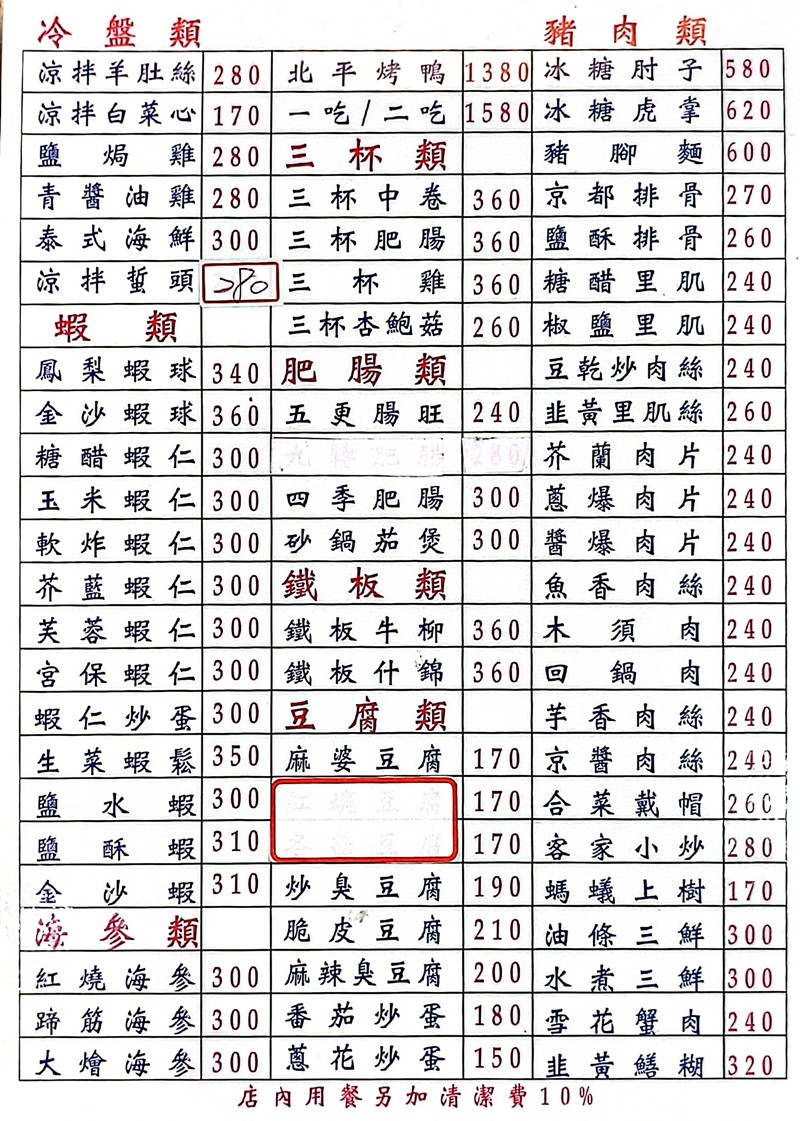 冷盤類
涼拌羊肚絲 280
涼拌白菜心 170
鹽焗雞 280
青醬油雞 280
泰式海鮮 300
涼拌蜇頭 280
蝦類
鳳梨蝦球 340
金沙蝦球 360
糖醋蝦仁 300
玉米蝦仁 300
軟炸蝦仁 300
芥藍蝦仁 300
芙蓉蝦仁 300
宮保蝦仁 300
蝦仁炒蛋 300
生菜蝦鬆 350
鹽水蝦 300
鹽酥蝦 310
金沙蝦 310
海參類
紅燒海參 300
蹄筋海參 300
大燴海參 300
北平烤鴨 1380
一吃/二吃 1580
三杯類
三杯中卷 360
三杯肥腸 360
三杯雞 360
三杯杏鮑菇 260
肥腸類
五更腸旺 240
九轉肥腸 280
四季肥腸 300
砂鍋茄煲 300
鐵板類
鐵板牛柳 360
鐵板什錦 360
豆腐類
麻婆豆腐 170
紅燒豆腐 170
豆腐 170
炒臭豆腐 190
脆皮豆腐 210
麻辣臭豆腐 200
番茄炒蛋 180
蔥花炒蛋 150
豬肉類
冰糖肘子 580
冰糖虎掌 620
豬腳麵 600
京都排骨 270
鹽酥排骨 260
糖醋里肌 240
椒鹽里肌 240
豆乾炒肉絲 240
韭黃里肌絲 260
芥蘭肉片 240
蔥爆肉片 240
醬爆肉片 240
魚香肉絲 240
木須肉 240
回鍋肉 240
芋香肉絲 240
京醬肉絲 240
合菜戴帽 260
客家小炒 280
螞蟻上樹 170
油條三鮮 300
水煮三鮮 300
雪花蟹肉 240
韭黃鱔糊 320
店內用餐另加清潔費10%